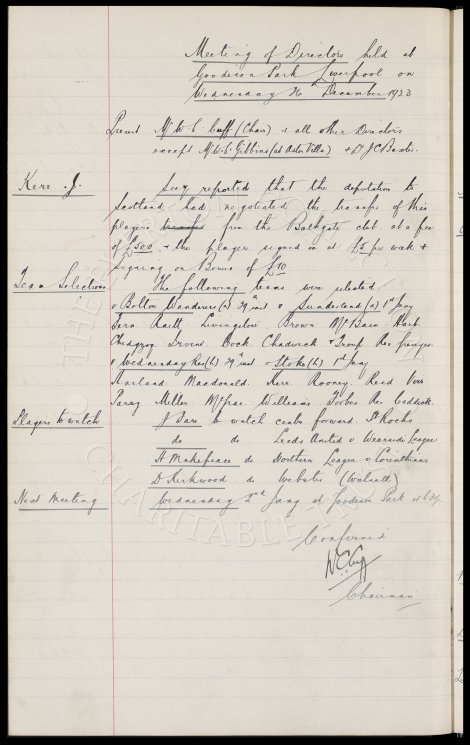 Meeting of Directors held at
Goodison Park Liverpool on
Wednesday 26th December 1923
Present Mr W.C. Cuff (Chair) & all other Directors
except Mr W.C. Gibbins (at Aston Villa) & Dr J.C. Baxter.
Kerr. J. Secy reported that the deputation to
Scotland had negotiated the transfer of this
player from the Bathgate club at a fee
of £500 & the player signed on at £5 per week &
signing on Bonus of £10
Team Selections The following teams were selected
v Bolton Wanderers (a) 29th inst & Sunderland (a) 1st Jany
Fern Raitt Livingstone Brown McBain Hart
Chedgzoy Irvine Cock Chadwick & Troup Res
v Wednesday Res (h) 29th inst & Stoke (h) 1st Jany
Harland Macdonald Kerr Rooney Reid Virr
Parry Miller Williams Forbes Res Caddick
Players to watch J Bare to watch centre forward St Rochs
do do Leeds United v Wearside League
H Makepeace do Northern League v Corinthians
D Kirkwood do Webster (Walsall)
Next Meeting Wednesday 2nd Jany at Goodison Park at
Confirmed
W.C. Cuff
Chairman